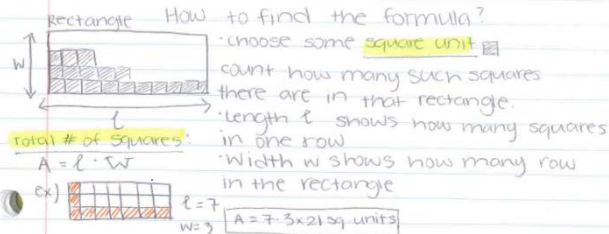 Rectangle How to find the formula?
• choose some square unit
w
count how many such squares
there are in that rectangle.
l
• Length l shows how many squares
Total # of squares:
in one row
A = l · W
• Width w shows how many row
in the rectangle
ex)
l = 7
w = 3
A = 7·3x21 sq units